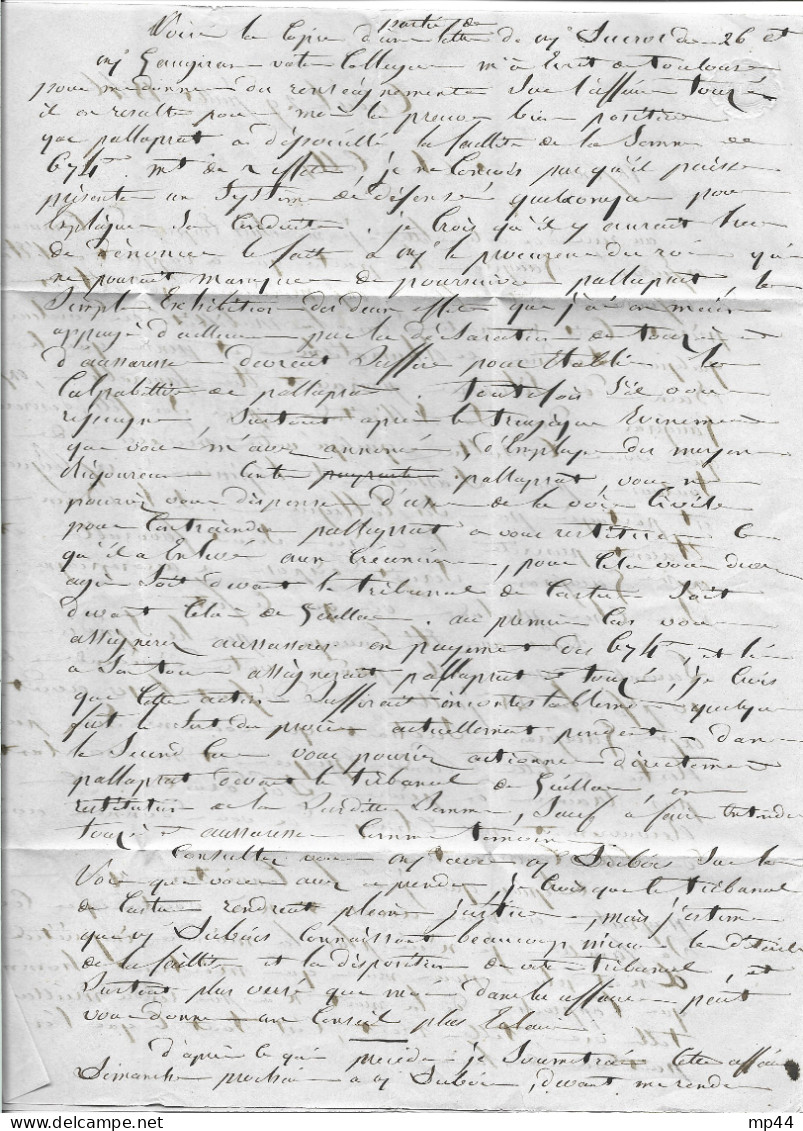 Voici la copie d'une partie de lettre de mr Ducros du 26 et
mr votre Collegue m'a Ecrit de toulouse
pour me donner des renseignements sur l'affaire touzé
il en resulte pour moi la preuve bien positive
que pallaprat a dépouillé la faillite de la somme de
674 mt de 2 effets, je ne Concois pas qu'il puisse
présenter un Systême de défense quelconque pour
Expliquer Sa Conduite. je Crois qu'il y aurait lieu
de dénoncer le fait a mr le procureur du roi qui
ne pourait manquer de poursuivre pallaprat, la
Simple Exhibition des deux effets que j'ai en mains
appuyé d'ailleurs par la déclaration de touzé
d'aussaresse devrait suffire pour Etablir la
Culpabilité de pallaprat. Toutefois s'il vous
repugne, surtout après le tragique Evénement
que vous m'avez annoncé, d'Employer des moyens
rigoureux Contre pallaprat, vous ne
pourriez vous dispenser d'user de la voie Civile
pour Contraindre pallaprat a vous restituer ce
qu'il a Enlevé aux Créanciers, pour Cela vous devez
agir Soit devant le tribunal de Castres Soit
devant Celui de Gaillac. au premier Cas vous
assignerez aussaresse en payement des 674
a Son tour assignerait pallaprat et touzé, je Crois
que Cette action Suffirait incontestablement quelque
fut le Sort du procès actuellement pendant. dans
le Second Cas vous pouriez actionner directement
pallaprat devant le tribunal de Gaillac, en
restitution de la Susditte Somme, Sauf a faire Entendre
touzé et aussaresse Comme temoins
Consultez vous mr avec mr Dubois Sur la
Voie que vous avez a prendre, je Crois que le tribunal
de Castres rendrait pleine justice, mais j'estime
que mr Dubois Connaissant beaucoup mieux les détails
de la faillite et la disposition de votre tribunal, et
Surtout plus versé que moi dans les affaires peut
vous donner un Conseil plus Eclairé
d'après ce qui précède je Soumettrai Cette affaire
Dimanche prochain a mr Dubois, devant me rendre
mp44